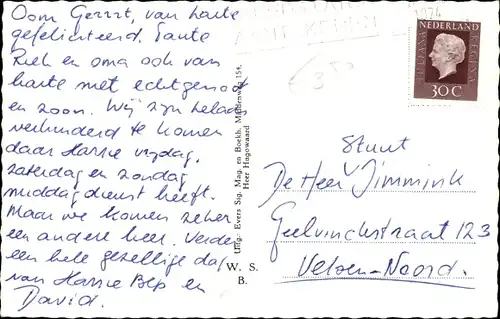 Oom Gerrit, van harte
gefeliciteerd. Tante
Rieh en oma ook van
harte met echtgenoot
en zoon. Wij zijn helaas
verhinderd te komen
daar Harrie vrijdag,
zaterdag en zondag
middag dienst heeft.
Maar we komen zeker
een andere keer. Verder
een hele gezellige dag
van Harrie Bep en
David.
1974
NEDERLAND
JULIANA REGINA
30 C
€ 3,50
Uitg. Evers Sig. Mag. en Boekh. Middenweg 154,
Heer Hugowaard
W. S.
B.
Stunt
De Heer Jimmink
Geelvinckstraat 123
Velsen-Noord.